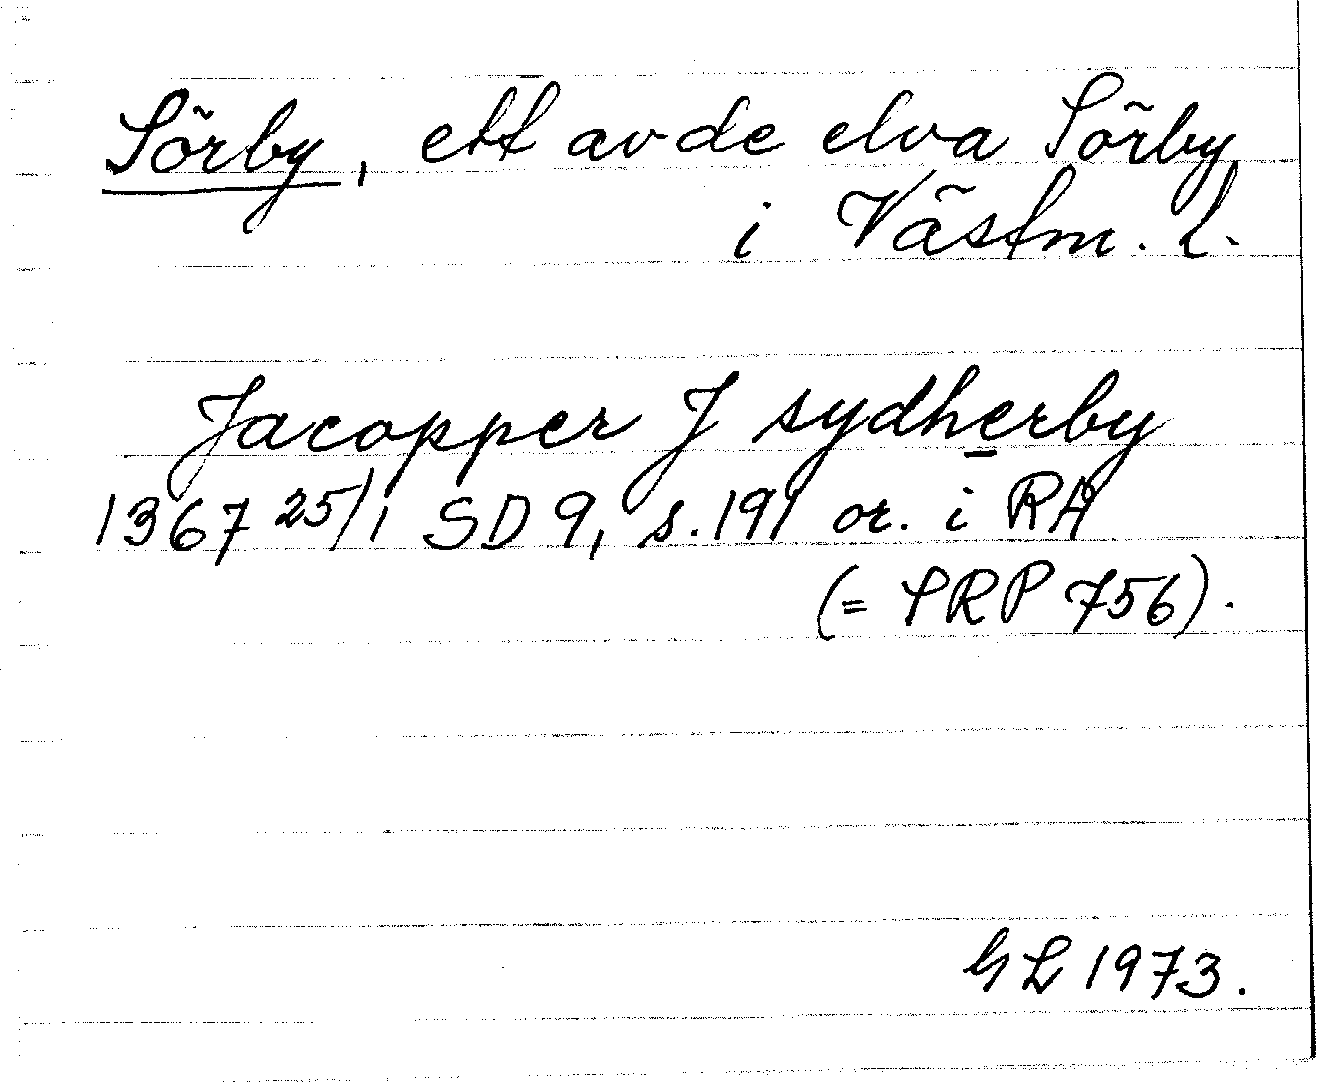 Sörby, ett av de elva Sörby
i Västm. l.
Jacopper J sydherby
1367 25/1 SD 9, s. 191 or. i RA
(= SRP 756).
GL 1973.